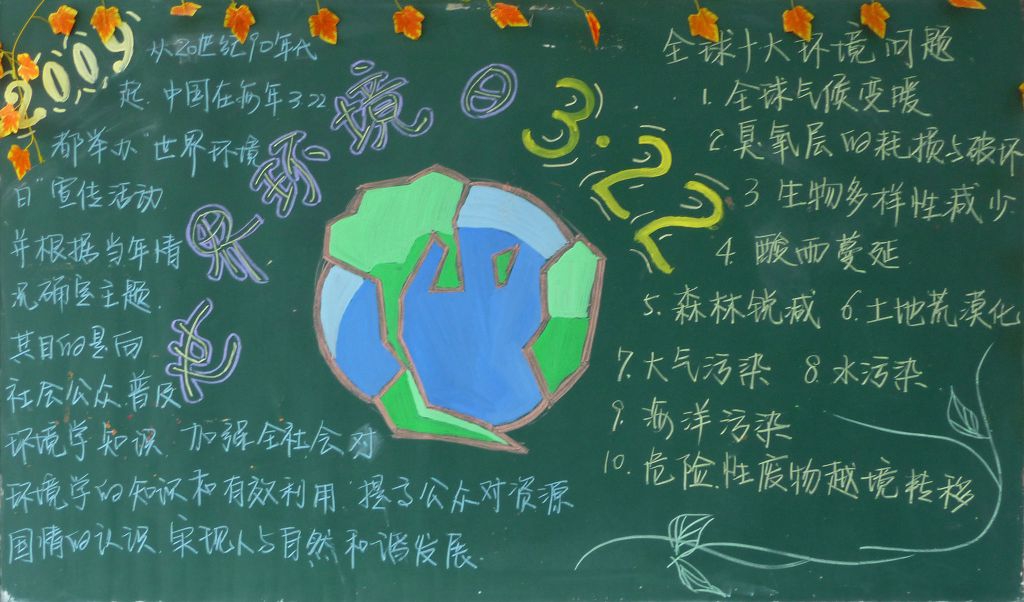 2009
从20世纪90年代
起.中国在每年3.22
都举办"世界环境
日"宣传活动
并根据当年情
况确定主题.
其目的是向
社会公众普及
环境学知识 加强全社会对
环境学的知识和有效利用.提高公众对资源
国情的认识.实现人与自然和谐发展.
世界环境日
3.22
全球十大环境问题
1.全球气候变暖
2.臭氧层的耗损与破坏
3 生物多样性减少
4.酸雨蔓延
5.森林锐减 6.土地荒漠化
7.大气污染 8.水污染
9.海洋污染
10.危险性废物越境转移